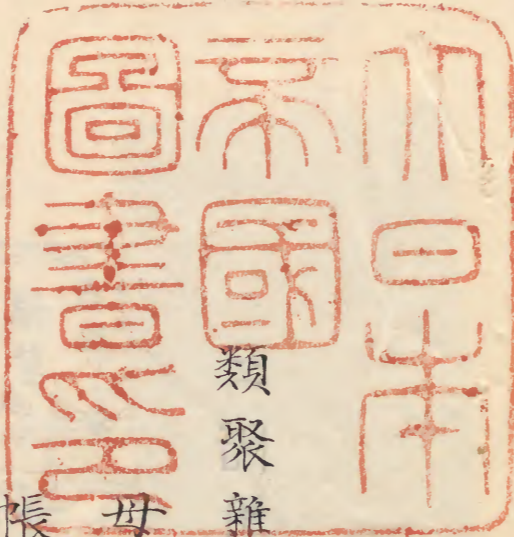 大日本
帝國
圖書印
類聚雜
母
帳